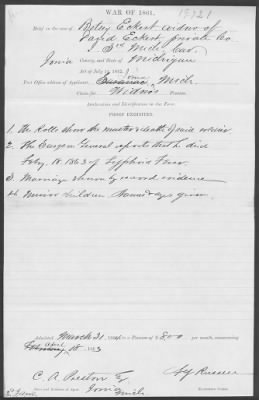 WAR OF 1861.
Brief in the case of Betsy Eckert widow of
David Eckert private Co
3rd Mich Cav.
Ionia County, and State of Michigan
Act of July 14, 1862.
Post Office address of Applicant: Ionia Mich
Claim for Widow's Pension.
Declaration and Identification in Due Form.
PROOF EXHIBITED.
1. The Rolls show the muster & death of said soldier
2. The Surgeon General reports that he died
Feby. 18. 1863 of Typhoid Fever.
3. Marriage shown by record evidence
4. Minor children names & ages given.
Admitted March 31, 1864 to a Pension of $8.00 per month, commencing
18, 1863
C. A. Preston Esq
Ionia
Mich.
Name and Residence of Agent.
Examining Clerk.